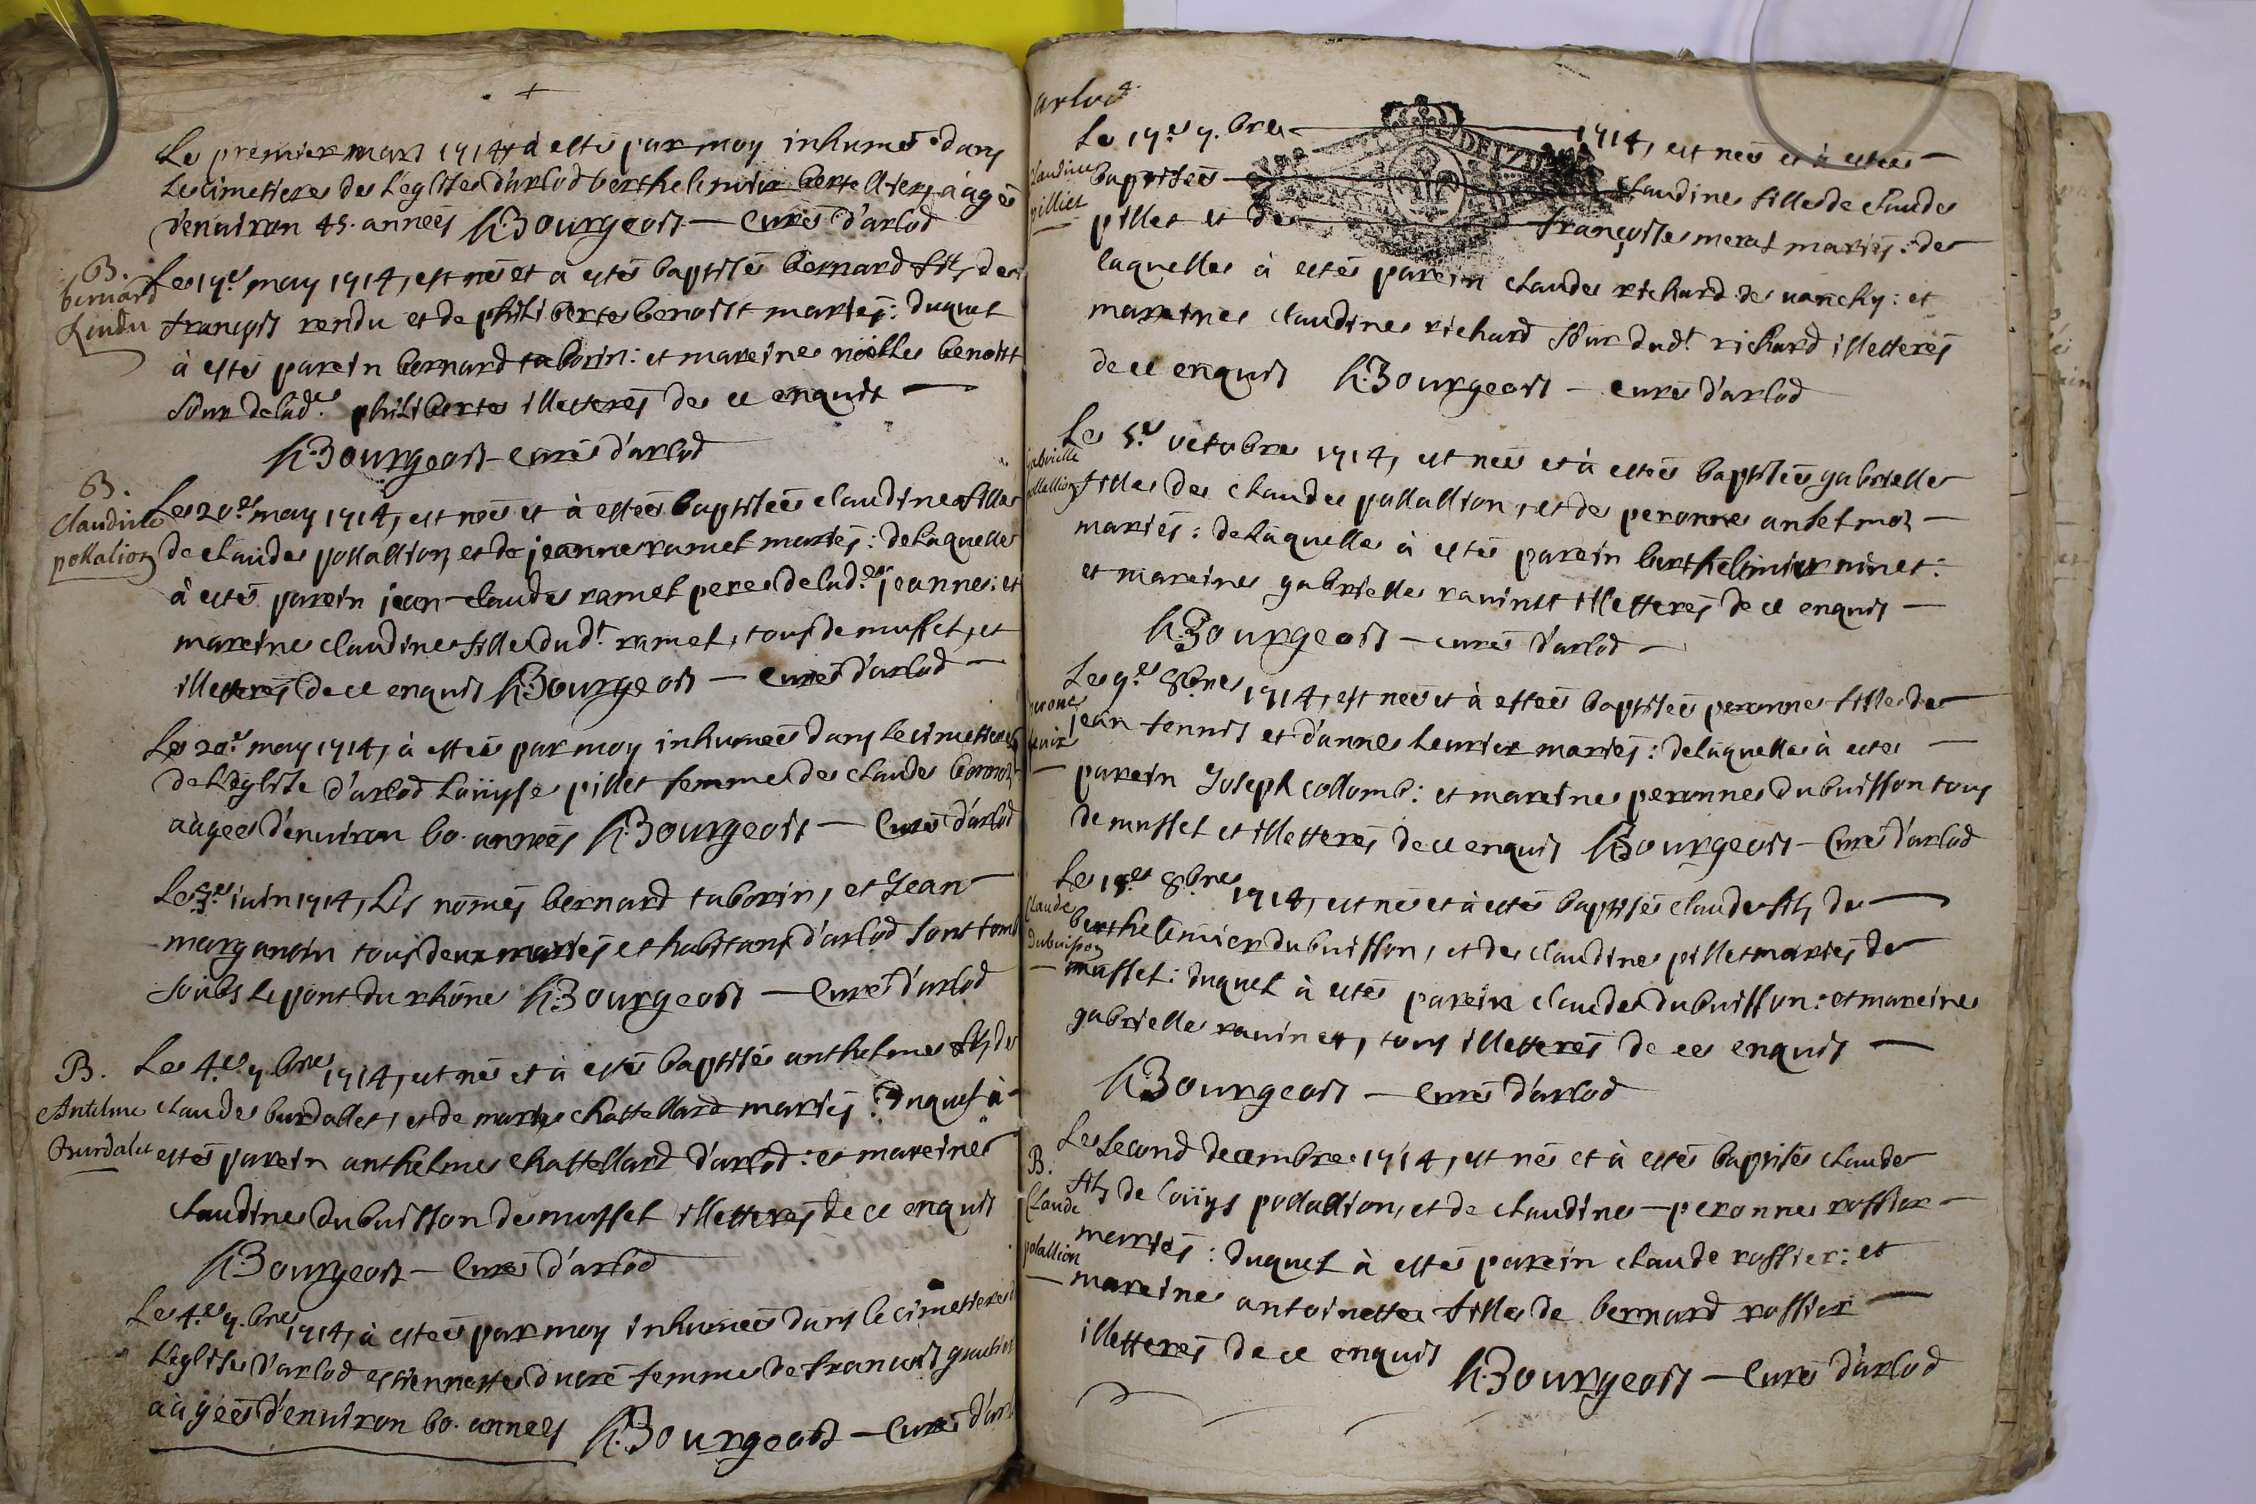 Le premier mars 1714, à esté par moy inhumé dans
Le cimetiere de L'eglise d'arlod berthelemier bertellier, aàgé
d'environ 45. annéés h. Bourgeois — Curé d'arlod
B.
bernard
Rendu
Le 17.e may 1714, est né et a esté baptisé bernard fils de
françois rendu et de philiberte benoist mariés: duquel
à esté parein bernard taborin: et mareine noëlle benoist
sour de lad.e philiberte illetterés de ce enquis —
h. Bourgeois — Curé d'arlod
B.
Claudine
pollalion
Le 20.e may 1714, est néé et à estéé baptiséé claudine fille
de claude pollallion, et de jeanne ramel mariés: de Laquelle
à esté parein jean-claude ramel pere de lad.e jeanne: et
mareine claudine fille dud.t ramel, tous de mussel, et
illetterés de ce enquis h. Bourgeois — Curé d'arlod —
Le 20.e may 1714, à estéé par moy inhuméé dans Le cimetiere
de L'eglise d'arlod Loüyse pillet femme de claude
aàgéé d'environ 60. annéés h. Bourgeois — Curé d'arlod
Le 3.e iuin 1714, Les només bernard taborin, et Jean
marganin tous deux mariés et habitans d'arlod sont tombé
soubs Le pont du rhône h. Bourgeois — Curé d'arlod
B.
Antelme
Burdalet
Le 4.e 7.bre 1714, est né et à esté baptisé anthelme fils de
claude burdallet, et de marie chattellard mariés: Duquel à
esté parein anthelme chattellard d'arlod: et mareine
claudine dubuisson de mussel illetterés de ce enquis
h. Bourgeois — Curé d'arlod
Le 4.e 7.bre 1714, à estéé par moy inhuméé dans le cimetiere
L'eglise d'arlod estiennette ducré femme de françois
aàgéé d'environ 60. annéés h. Bourgeois — Curé d'arl
arlod
Le 17.e 7.bre — 1714, est néé et à estéé —
Claudine
pilliet
baptiséé — claudine fille de claude
DEUZ D
pillet et de — françoise merat mariés: de
laquelle à esté parein claude richard de vanchy: et
mareine claudine richard sour dud.t richard illetterés
de ce enquis h. Bourgeois — curé d'arlod
Le 5.e octobre 1714, est néé et à estéé baptiséé gabrielle
gabrielle
pollallion
fille de claude pollallion, et de peronne anselmoz —
mariés: de Laquelle à esté parein berthelemier ninet:
et mareine gabrielle ravinet illetterés de ce enquis —
h. Bourgeois — curé d'arlod —
Le 9.e 8.bre 1714, est néé et à estéé baptiséé peronne fille de
jean tennis et d'anne Leurier mariés: de Laquelle à esté —
parein Joseph collomb: et mareine peronne dubuisson tous
de mussel et illetterés de ce enquis h. Bourgeois — Curé d'arlod
Le 18.e 8.bre 1714, est né et à esté baptisé claude fils de —
Claude
Dubuisson
berthelemier dubuisson, et de claudine pillet mariés de
mussel: duquel à esté parein claude dubuisson: et mareine
gabrielle ravinet, tous illetterés de ce enquis —
h. Bourgeois — Curé d'arlod
Le second decembre 1714, est né et à esté baptisé claude
B.
Claude
polallion
fils de Loüys pollallion, et de claudine — peronne rossier —
mariés: duquel à esté parein claude rossier: et
mareine antoinette fille de bernard rossier —
illetterés de ce enquis
h. Bourgeois — Curé d'arlod